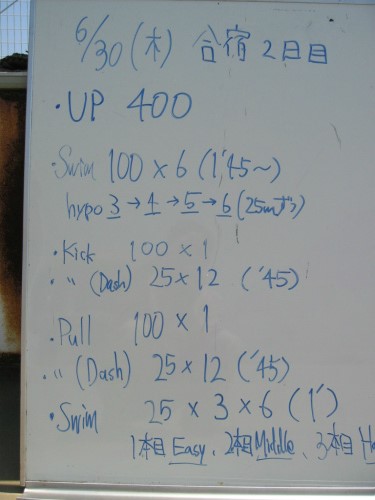 6/30(木) 合宿2日目
・UP 400
・Swim 100×6 (1'45~)
hypo 3→4→5→6 (25mずつ)
・Kick 100×1
・〃 (Dash) 25×12 ('45)
・Pull 100×1
・〃 (Dash) 25×12 ('45)
・Swim 25×3×6 (1')
1本目Easy、2本目Middle、3本目